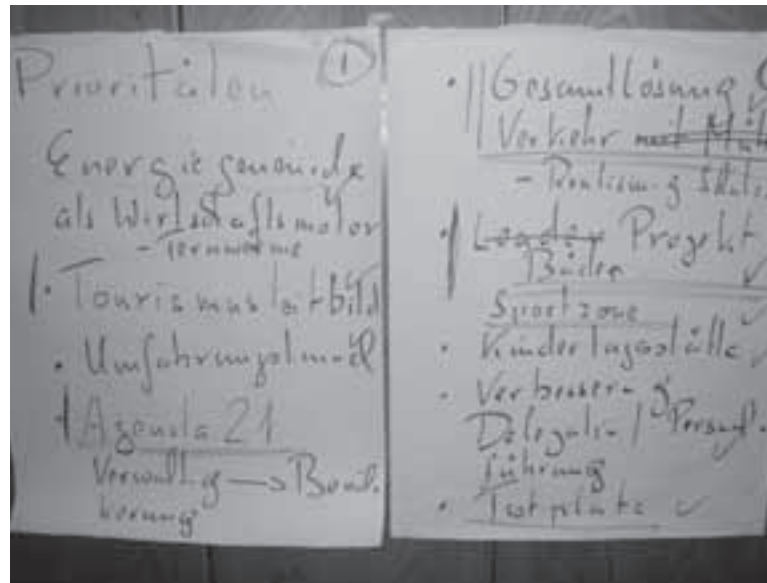 Prioritäten 1
Energiegemeinde
als Wirtschaftsmotor
- Fernwärme
Tourismusleitbild
Umfahrungstunnel
Agenda 21
Verwaltg → Bevöl.
kerung
Gesamtlösung
Verkehr mit
-
Leader Projekt
Bäder
Sportzone
Kindertagesstätte
Verbesserg
Delegation / Personal
führung